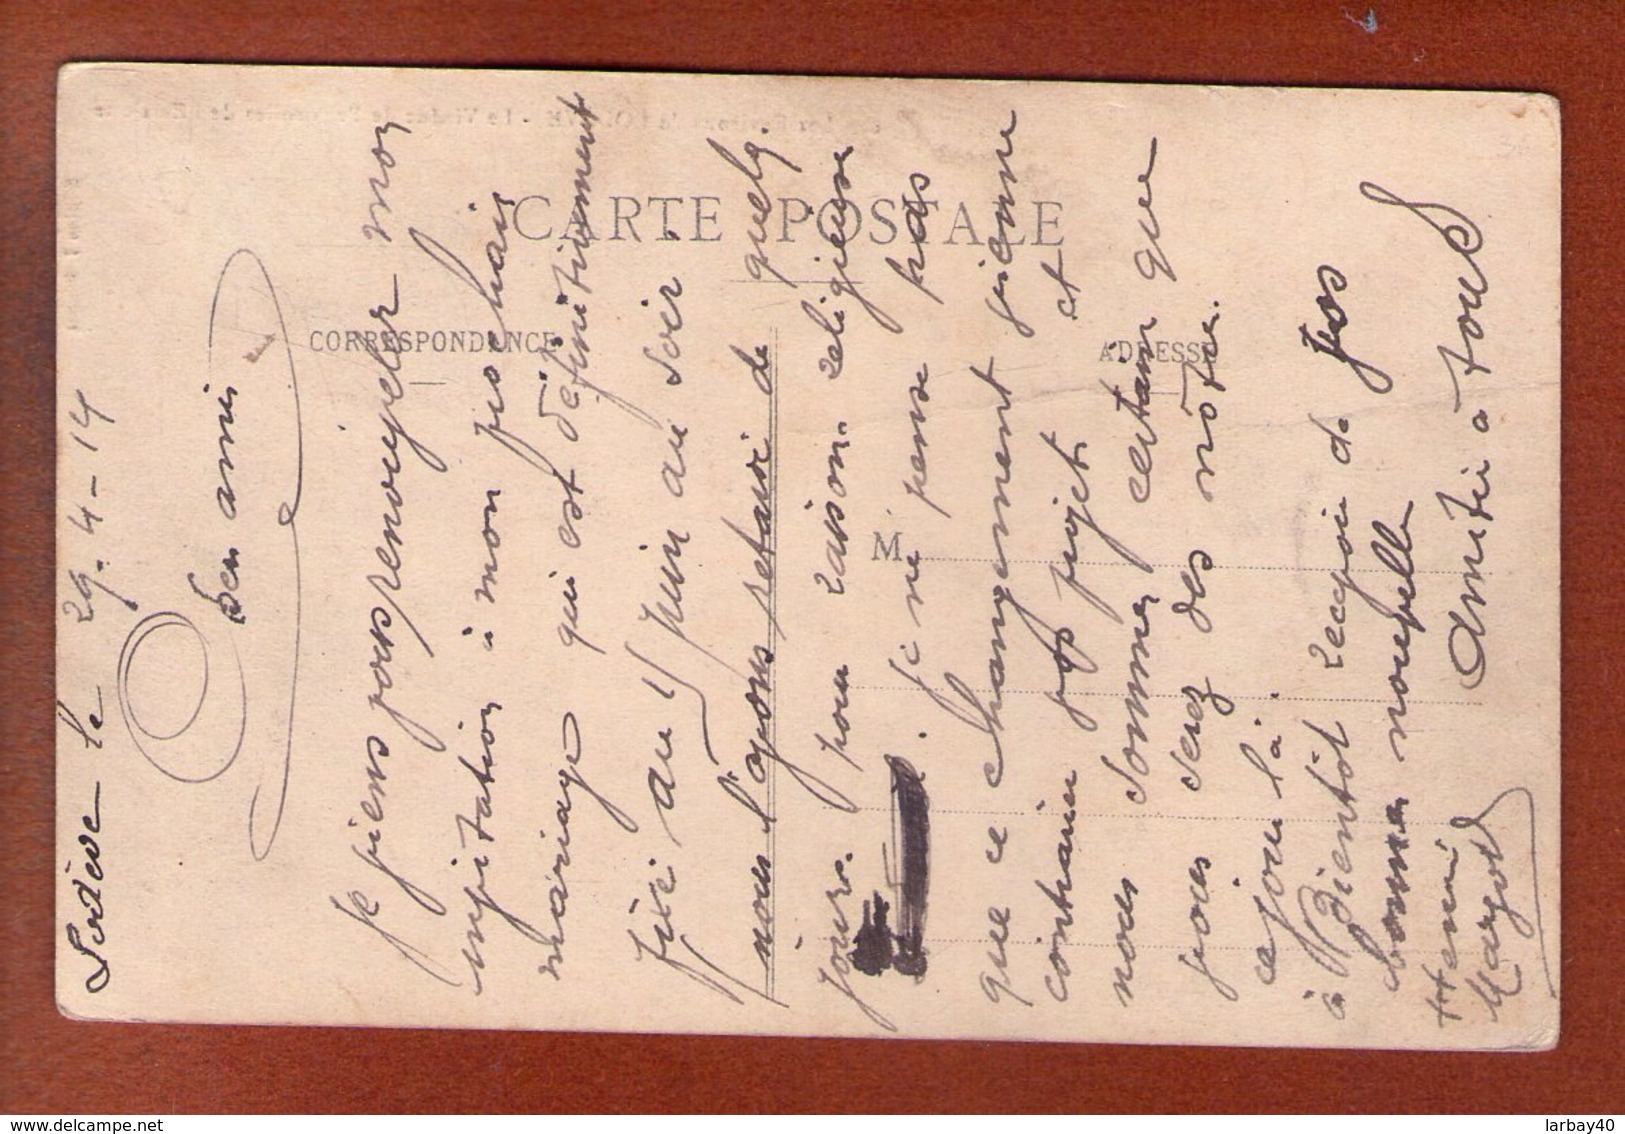 Lodève le 29-4-14
Bien amis
Je viens vous renouveler mon
invitation à mon prochain
mariage qui est définitivement
fixé au 1 Juin au soir.
nous l'avons retardé de quelq.
jours. pour raison religieuse
. je ne pense pas
que ce changement vienne
contrarier vos projets et
nous sommes certain que
vous serez des nôtres
ce jour là.
à Bientôt recevoir de vos
bonnes nouvelles
Amitié à tous
Henri
Margot
CARTE POSTALE
CORRESPONDANCE
ADRESSE
M
delcampe.net
larbay40